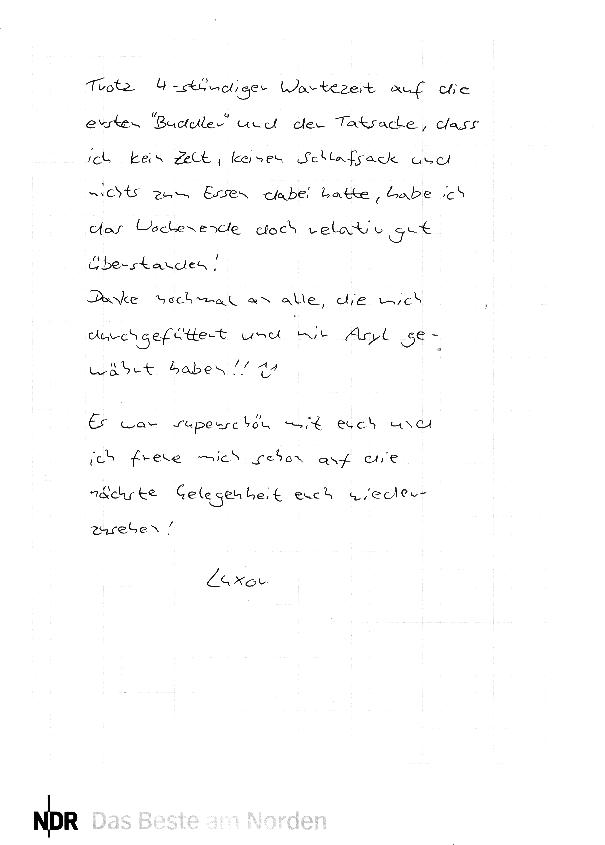 Trotz 4-stündiger Wartezeit auf die
ersten "Buddler" und der Tatsache, dass
ich kein Zelt, keinen Schlafsack und
nichts zum Essen dabei hatte, habe ich
das Wochenende doch relativ gut
überstanden!
Danke nochmal an alle, die mich
durchgefüttert und mir Asyl ge-
währt haben!!
Es war superschön mit euch und
ich freue mich schon auf die
nächste Gelegenheit euch wieder-
zusehen!
NDR Das Beste am Norden